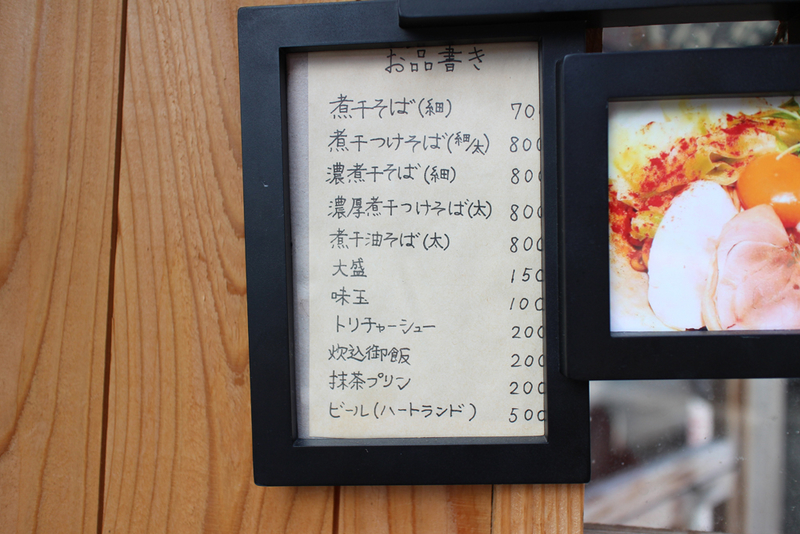 お品書き
煮干そば(細) 700
煮干つけそば(細/太) 800
濃煮干そば(細) 800
濃厚煮干つけそば(太) 800
煮干油そば(太) 800
大盛 150
味玉 100
トリチャーシュー 200
炊込御飯 200
抹茶プリン 200
ビール(ハートランド) 500